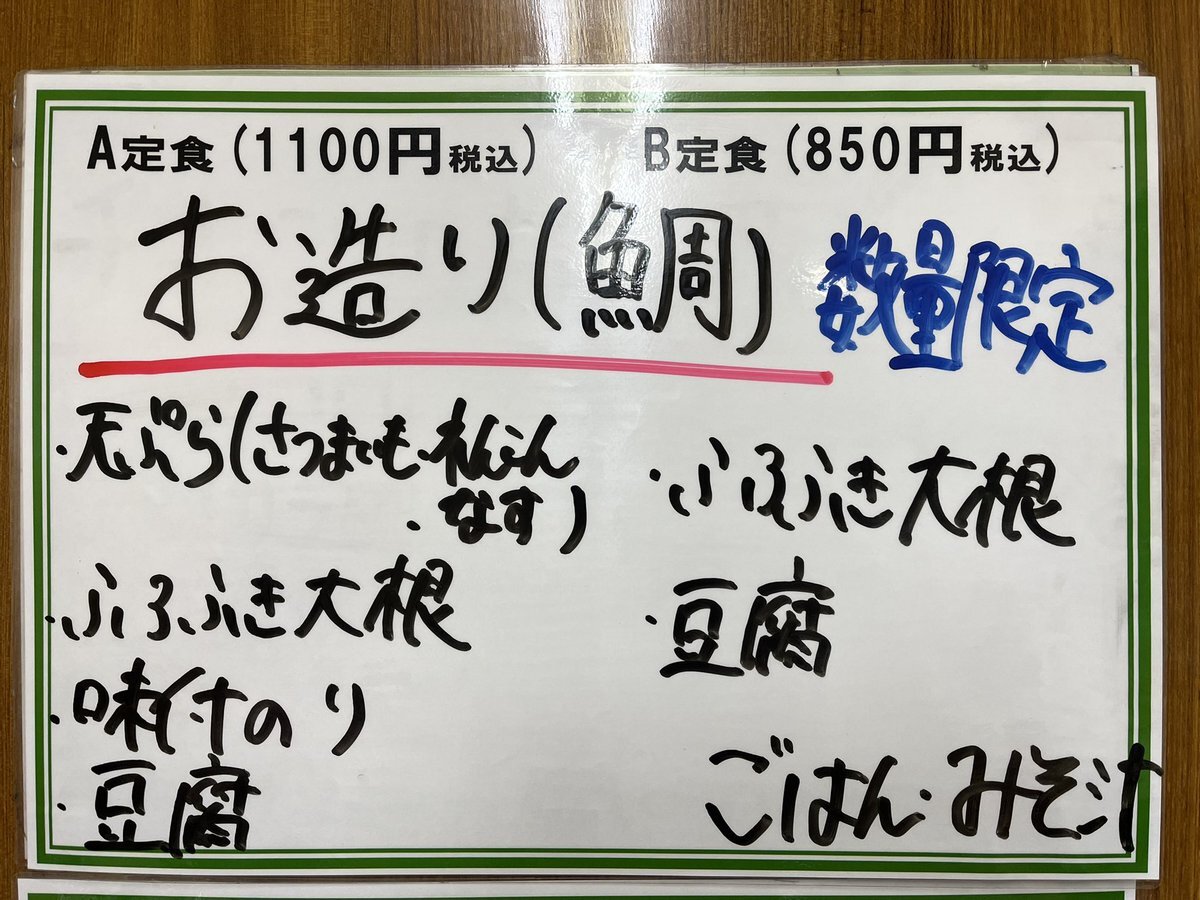 A定食(1100円税込)
B定食(850円税込)
お造り(鯛)
数量限定
・天ぷら(さつまいも・れんこん
・なす)
・ふろふき大根
・味付のり
・豆腐
・ふろふき大根
・豆腐
ごはん・みそ汁